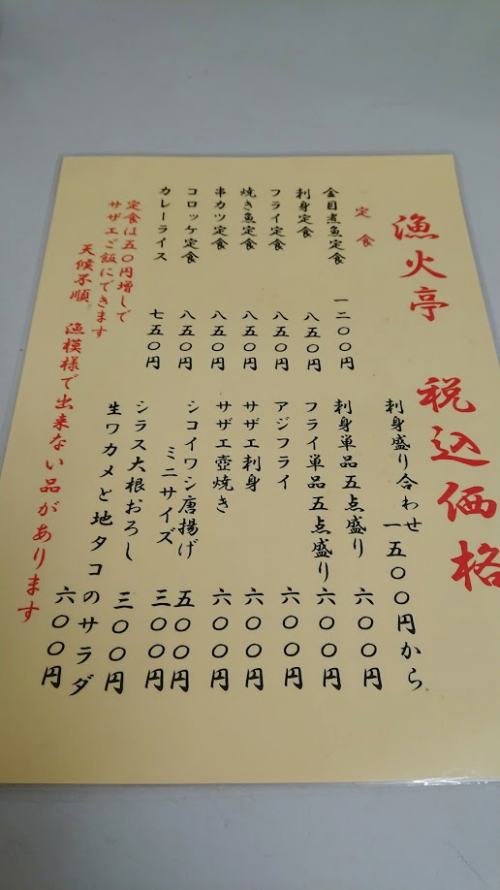 漁火亭 税込価格
定食
金目煮魚定食 一二〇〇円
刺身定食 八五〇円
フライ定食 八五〇円
焼き魚定食 八五〇円
串カツ定食 八五〇円
コロッケ定食 八五〇円
カレーライス 七五〇円
定食は五〇円増しで
サザエご飯にできます
刺身盛り合わせ 一五〇〇円から
刺身単品五点盛り 六〇〇円
フライ単品五点盛り 六〇〇円
アジフライ 六〇〇円
サザエ刺身 六〇〇円
サザエ壺焼き 六〇〇円
シコイワシ唐揚げ 五〇〇円
ミニサイズ 三〇〇円
シラス大根おろし 三〇〇円
生ワカメと地タコのサラダ
六〇〇円
天候不順 漁模様で出来ない品があります